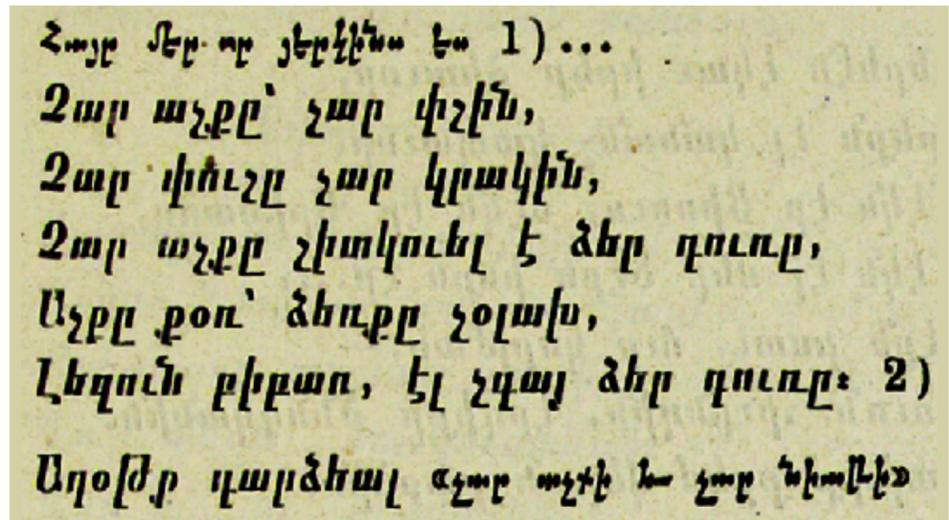 Հայր մեր որ յերկինս ես 1)...
Չար աչքը՝ չար փշին,
Չար փուշը չար կրակին,
Չար աչքը չիտկուել է ձեր դուռը,
Աչքը քօռ՝ ձեռքը չօլախ,
Լեզուն բիբառ, էլ չգայ ձեր դուռը։ 2)
Աղօթք դարձեալ «չար աչքի եւ չար նիաթի»